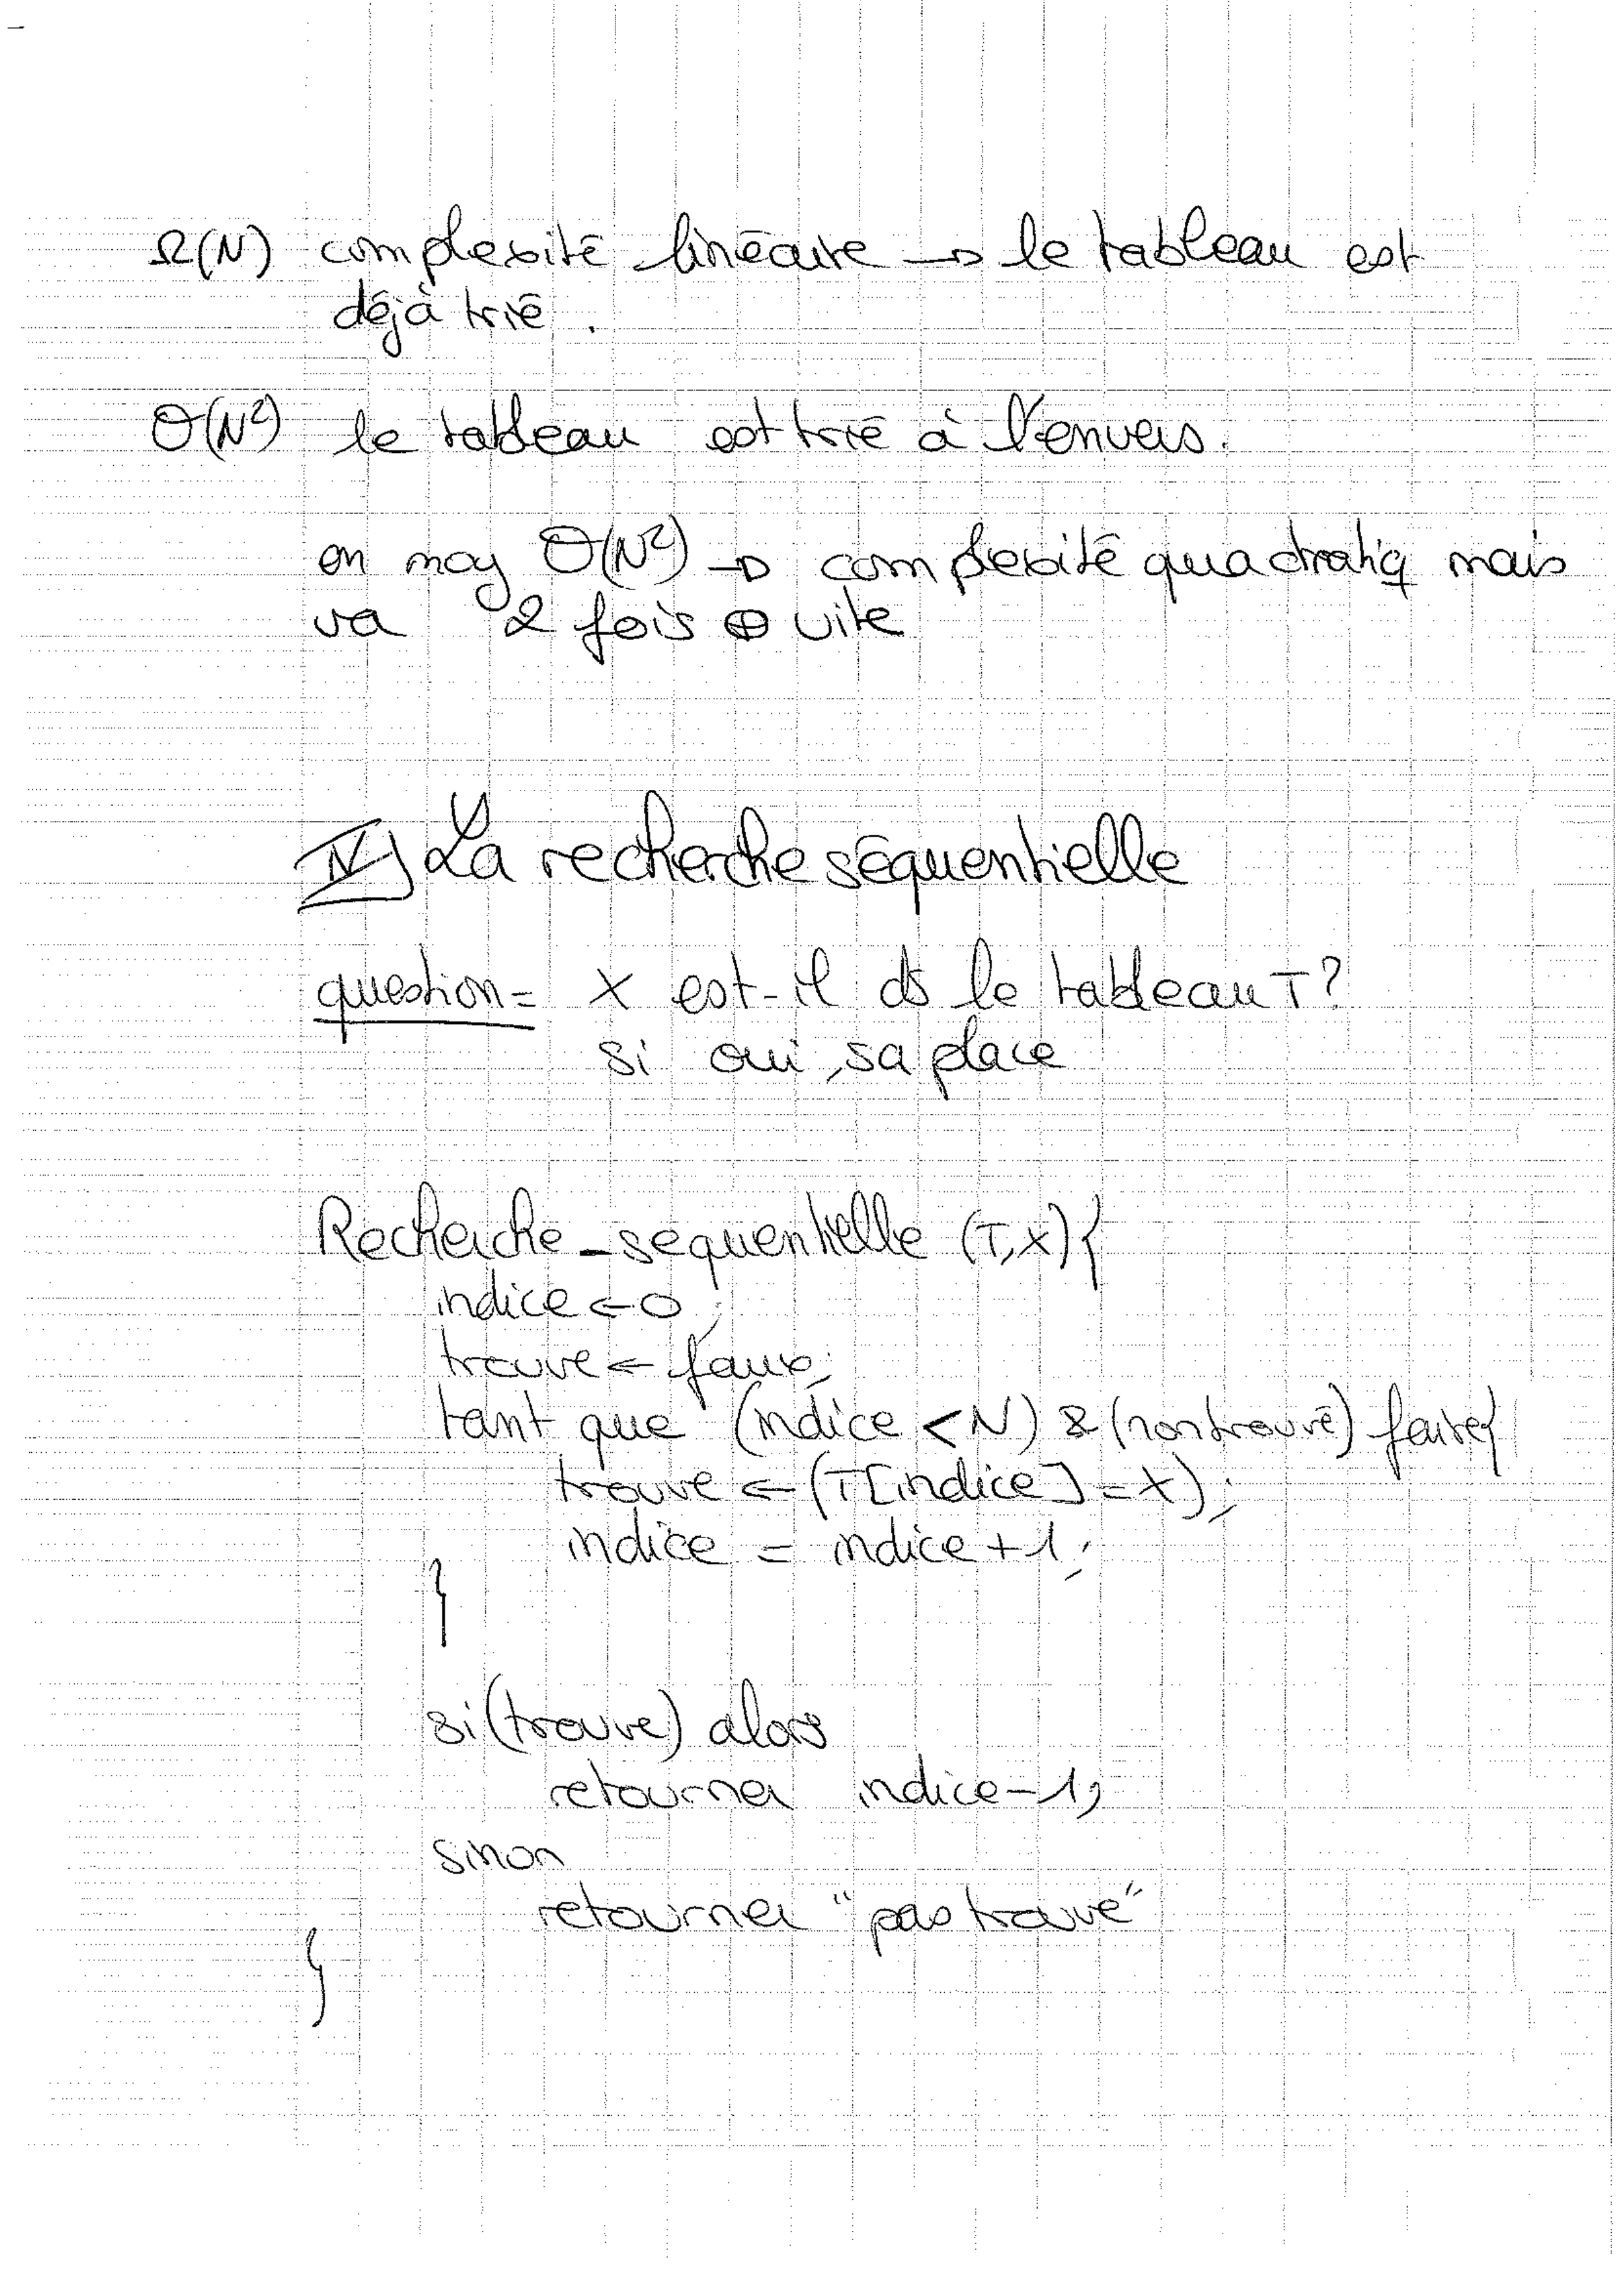 Ω(N) complexité linéaire → le tableau est
déjà trié.
Θ(N²) le tableau est trié à l'envers.
en moy Θ(N²) → complexité quadratiq mais
va 2 fois ⊕ vite
IV) La recherche séquentielle
question = X est-il ds le tableau T?
si oui, sa place
Recherche_sequentielle (T,X){
indice ← 0;
trouve ← faux;
tant que (indice < N) & (non trouvé) faire{
trouve ← (T[indice] = X);
indice = indice + 1;
}
si (trouve) alors
retourner indice-1;
sinon
retourner "pas trouve"
}